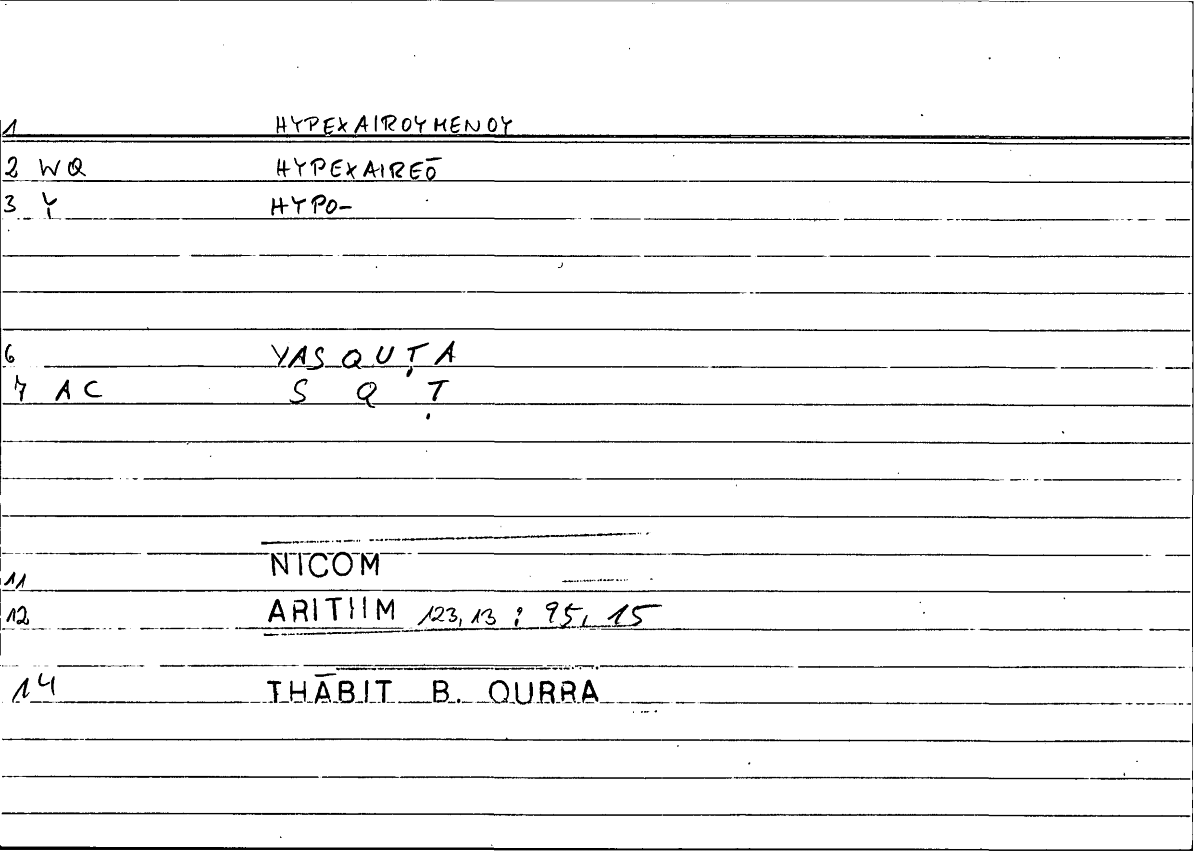 1 HYPEXAIROYMENOY
2 WQ HYPEXAIREŌ
3 Y HYPO-
6 YASQUṬA
7 AC S Q Ṭ
NICOM
11
12 ARITHM 123,13 : 95,15
14 THĀBIT B. QURRA